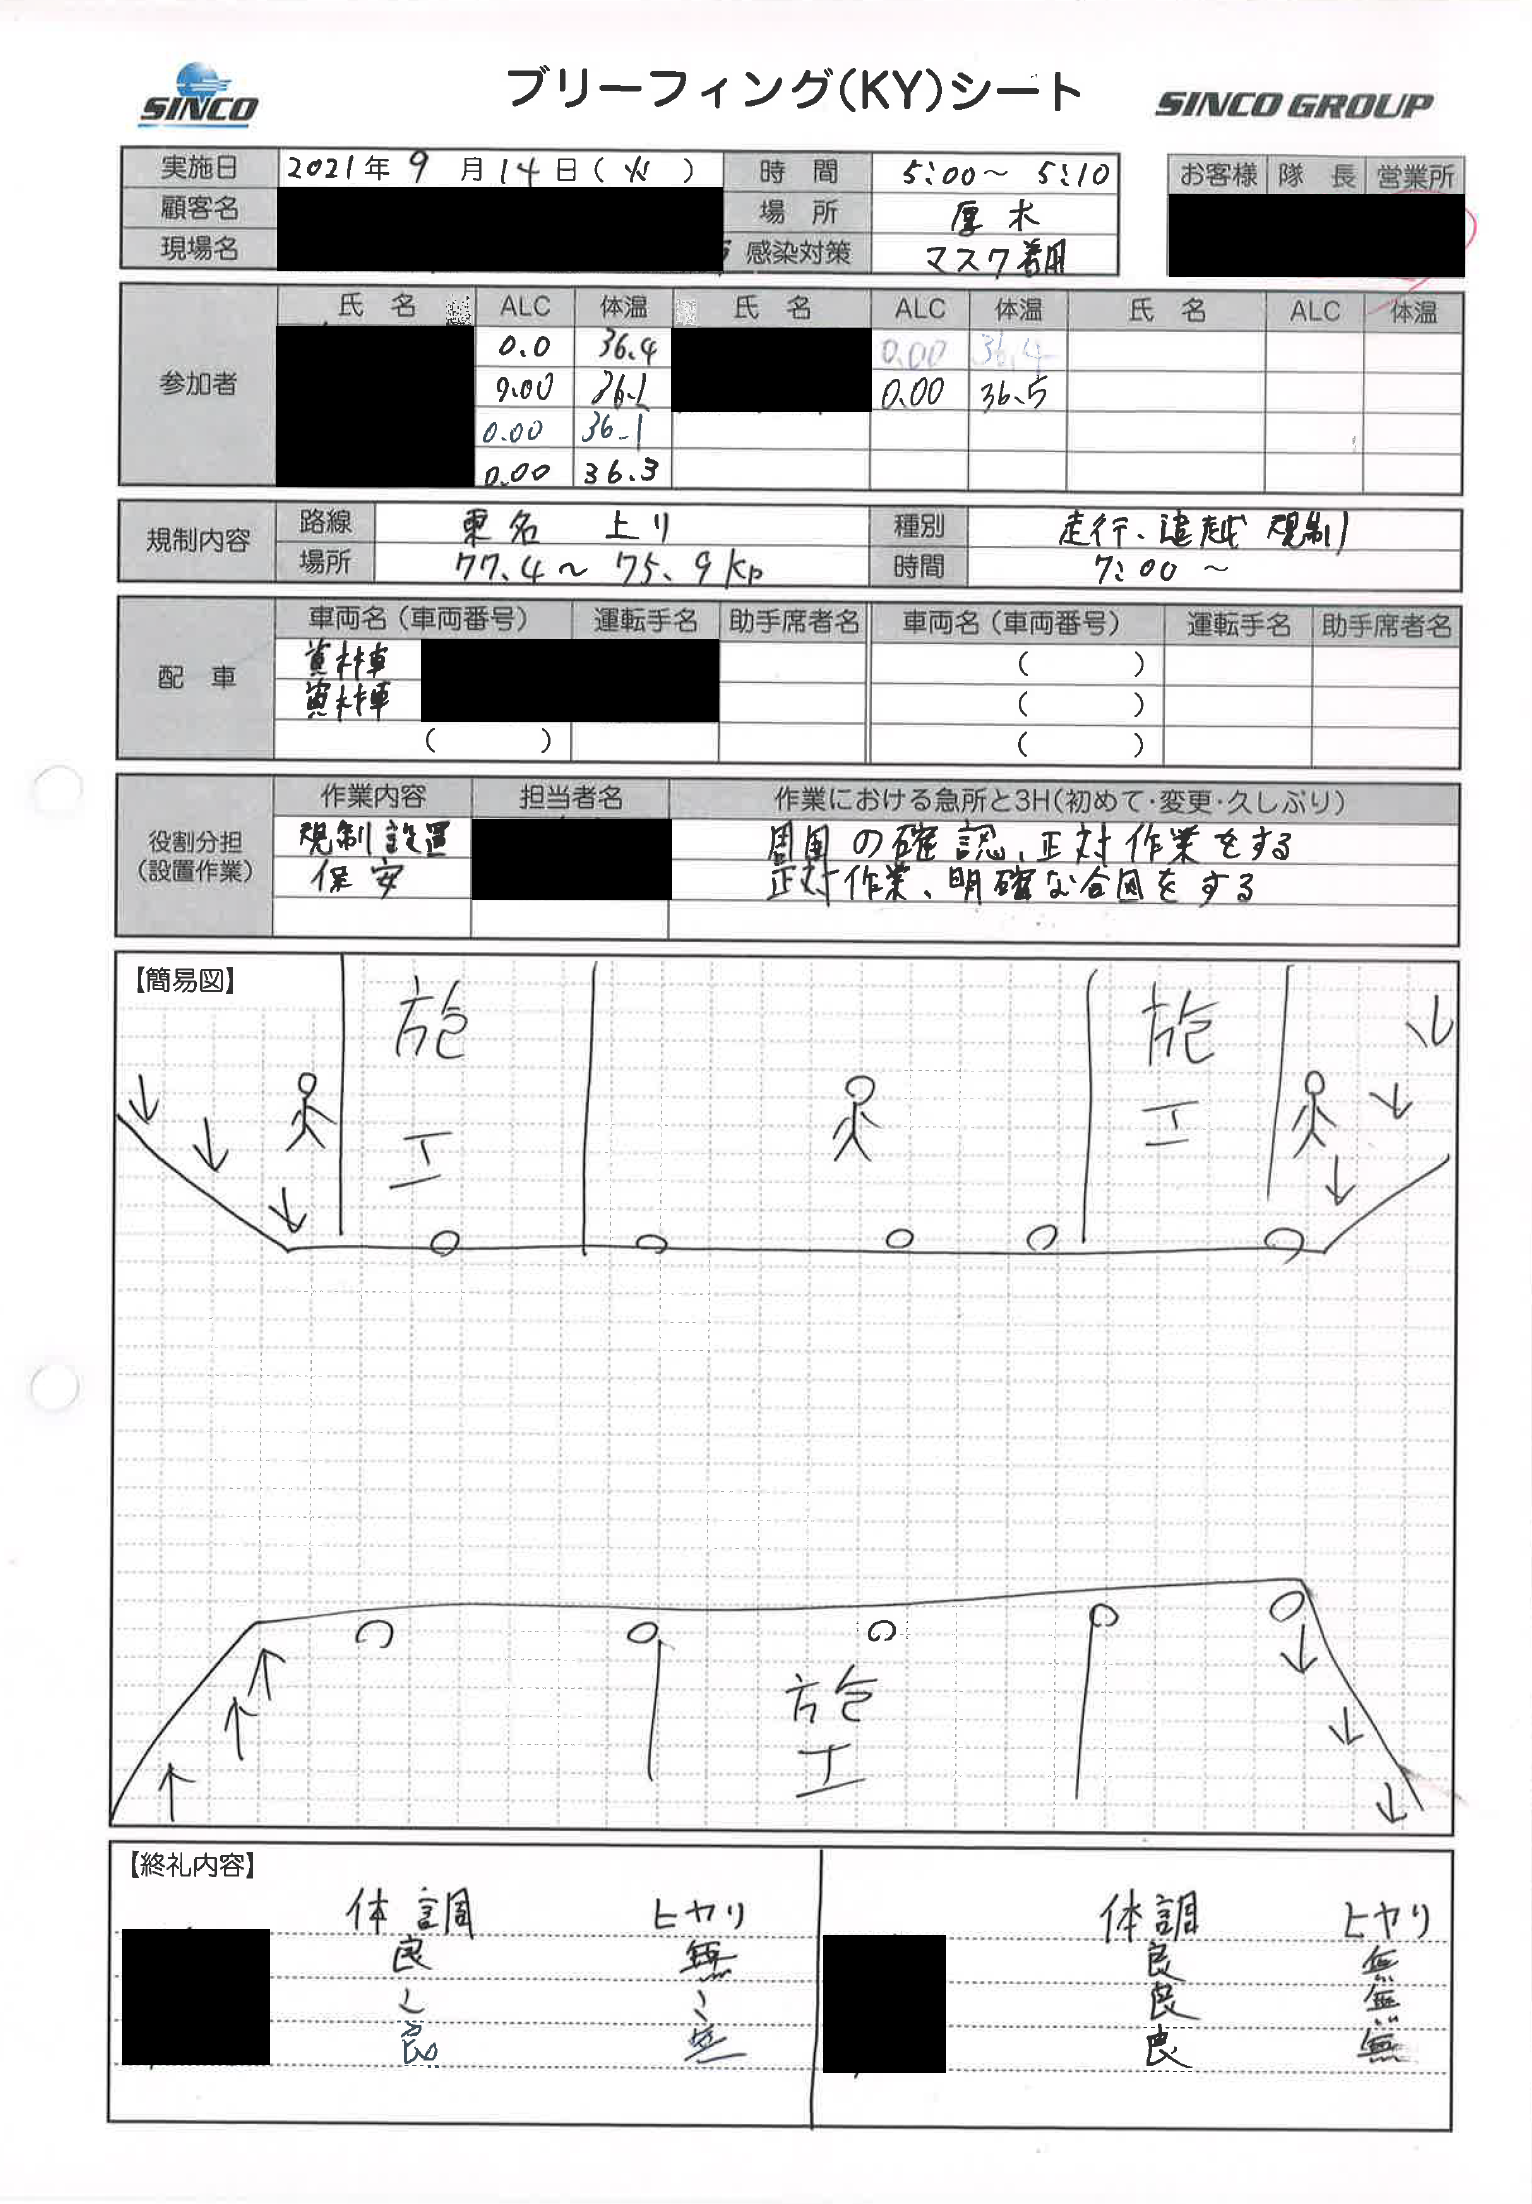 SINCO
ブリーフィング(KY)シート
SINCO GROUP
実施日 2021年 9 月 14 日 ( 火 ) 時 間 5:00〜 5:10
顧客名 場 所 厚木
現場名 感染対策 マスク着用
お客様 隊 長 営業所
参加者
氏 名 ALC 体温 氏 名 ALC 体温 氏 名 ALC 体温
0.0 36.4 0.00 36.4
0.00 36.1 0.00 36.5
0.00 36.1
0.00 36.3
規制内容
路線 東名 上り 種別 走行、追越 規制
場所 77.4〜 75.9kp 時間 7:00 〜
配 車
車両名(車両番号) 運転手名 助手席者名 車両名(車両番号) 運転手名 助手席者名
資材車 ( )
資材車 ( )
( ) ( )
役割分担
(設置作業)
作業内容 担当者名 作業における急所と3H(初めて・変更・久しぶり)
規制設置 周囲の確認、正対作業をする
保安 正対作業、明確な合図をする
【簡易図】
施工 施工
施工
【終礼内容】
体調 ヒヤリ 体調 ヒヤリ
良 無 良 無
〃 〃 良 無
良 無 良 無